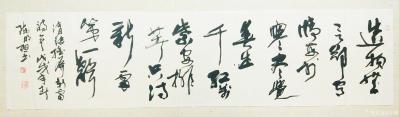 造物無
言却有
情每於
寒盡覺
春生
千紅萬
紫安排
著只待
新雷
第一聲
清張維屏新雷
戊戌年